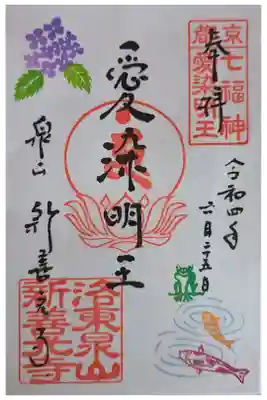 奉拝
京七福神
都愛染明王
愛染明王
令和四年
六月二十五日
泉山
新善光寺
洛東泉山
新善光寺